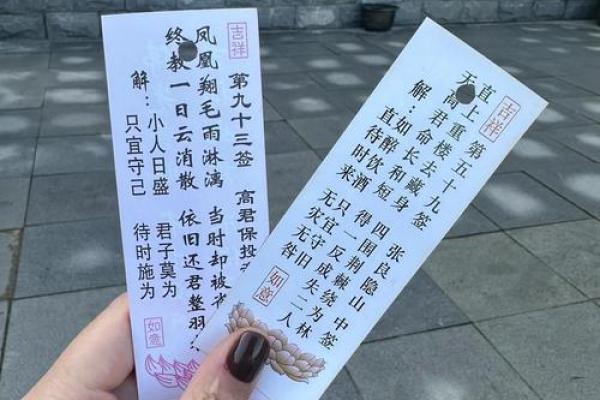 吉祥
第九十三签 高君保投
凤凰翔毛雨淋漓 当时却被
终教一日云消散 依旧还君整羽
解：小人日盛 君子莫为
只宜守己 待时施为
如意
吉祥
第五十九签 张良隐山 中签
直上重楼去藏身 四围荆棘绕为林
天高君命长和短 得一反成失二人
解：如醉饮酒 只宜守旧
直待时来 无灾无咎
如意